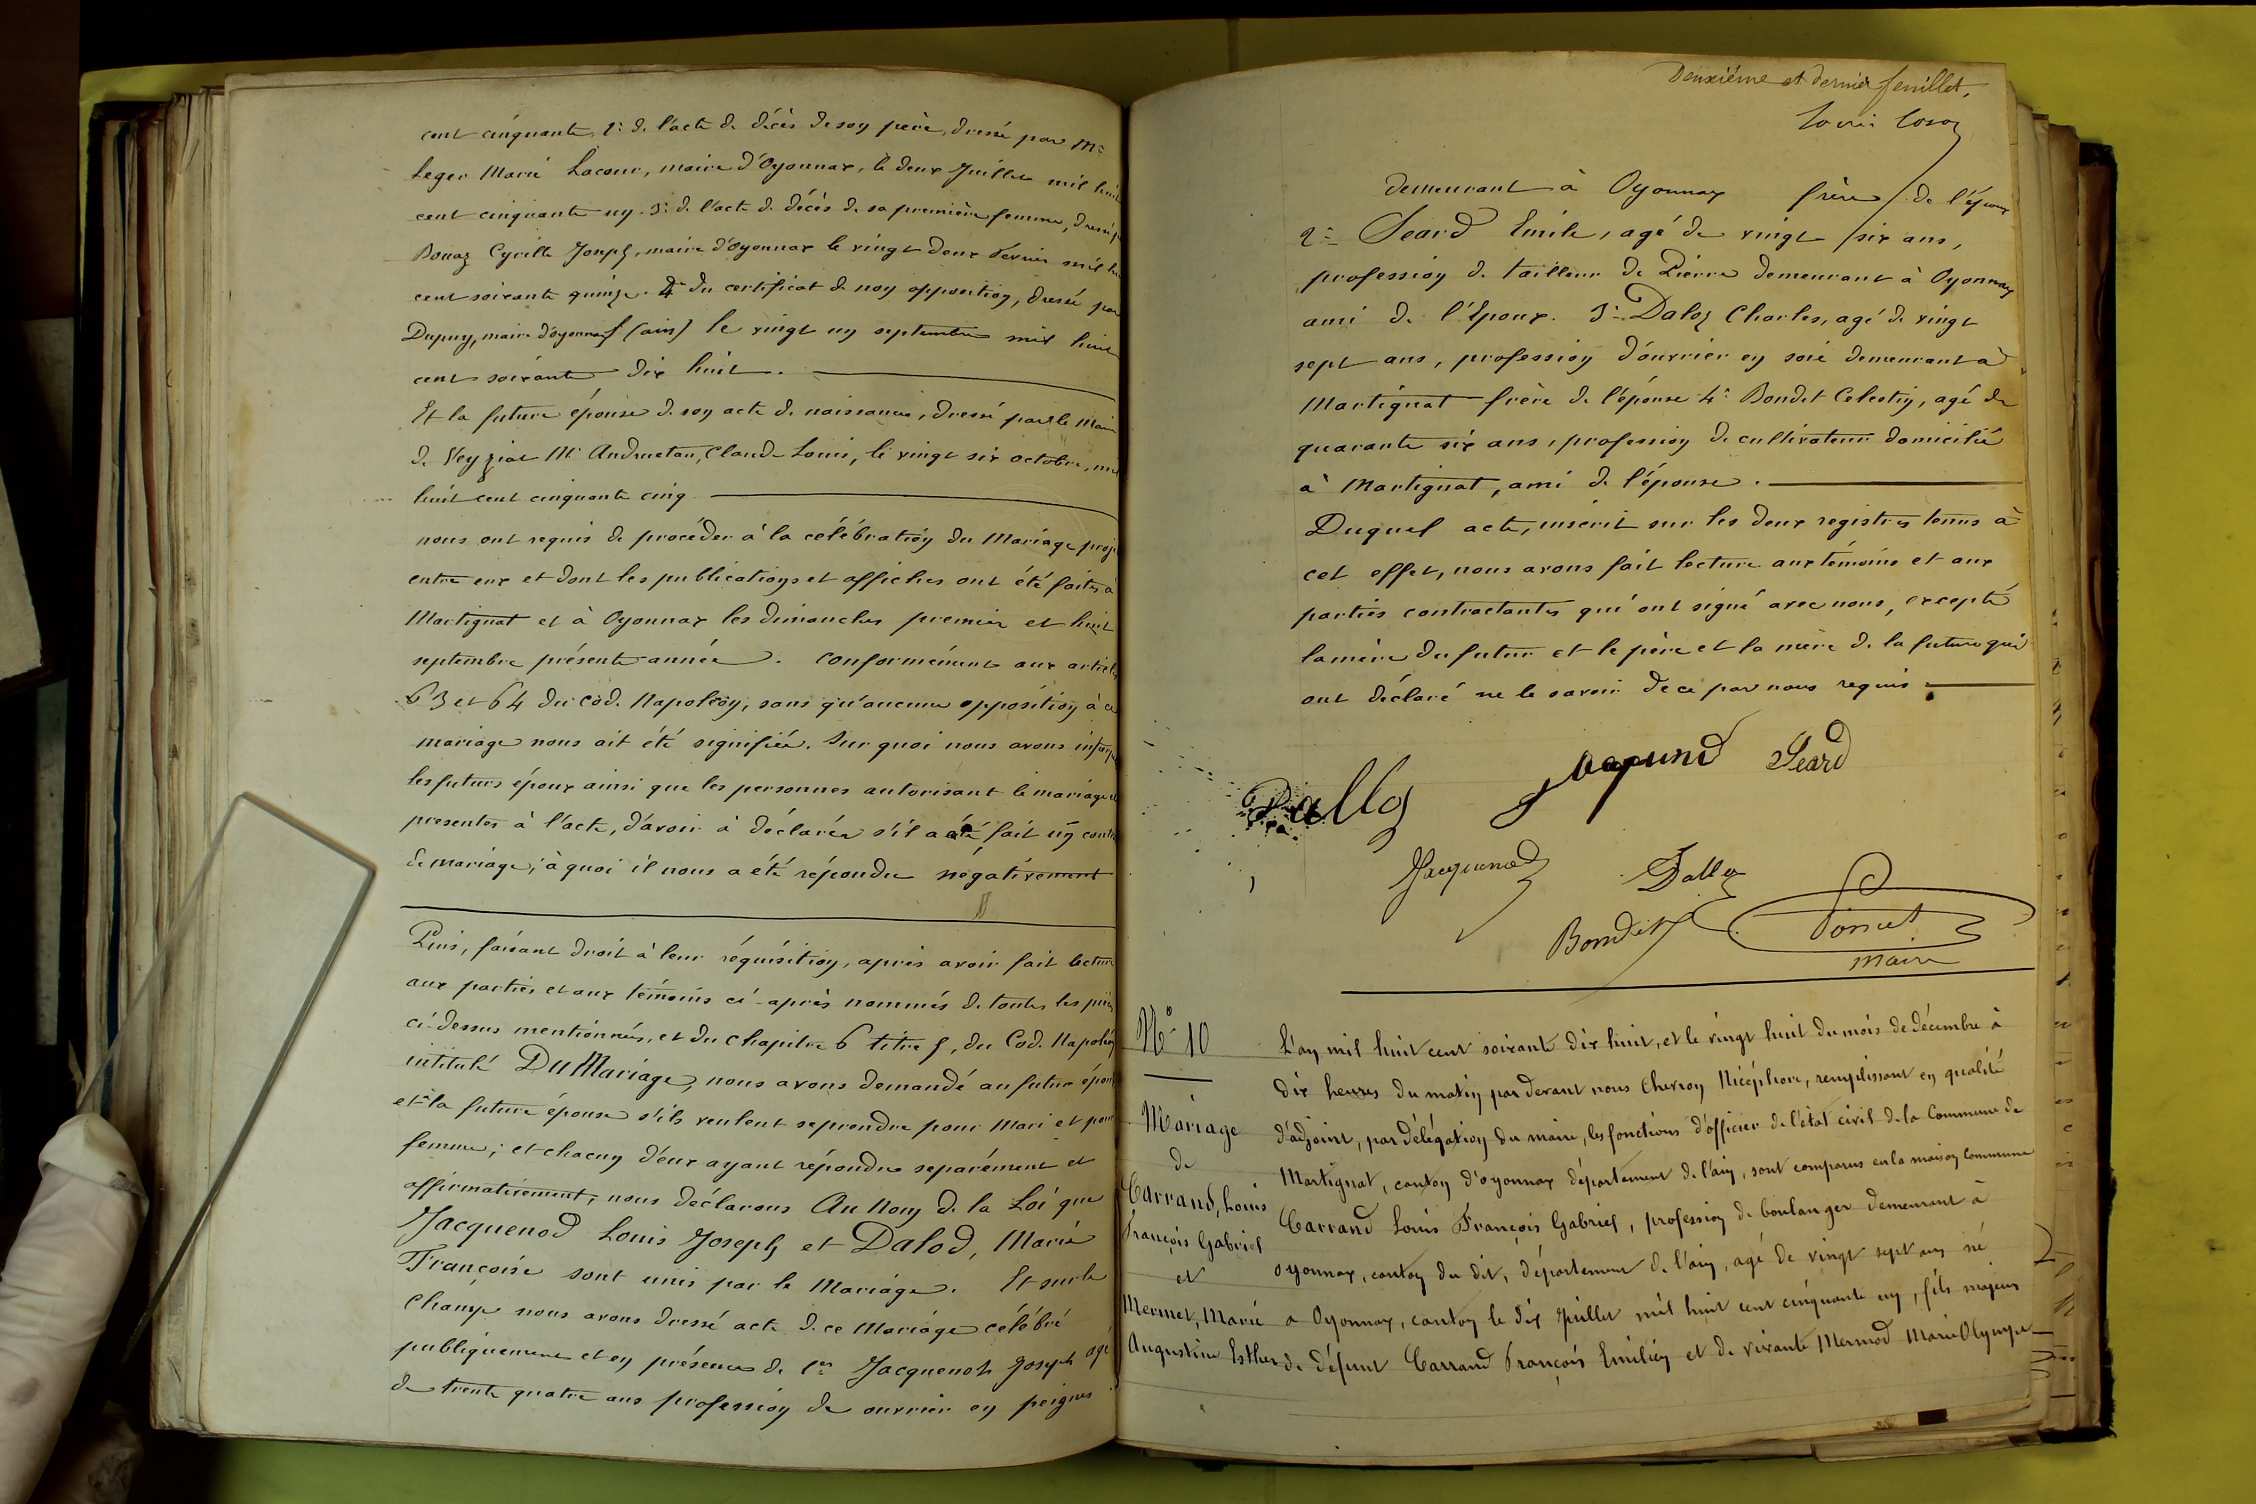 cent cinquante, 2º de l'acte de décès de son père, dressé par Mr
Leger Marie Lacour, maire d'Oyonnax, le deux Juillet mil huit
cent cinquante un. 3º de l'acte de décès de sa première femme, dressé p
Bonaz Cyrille Joseph, maire d'Oyonnax le vingt deux Février mil hu
cent soixante quinze. 4º du certificat de non opposition, dressé par
Dupuy, maire d'oyonnax (ain) le vingt un septembre mil huit
cent soixante dix huit.
Et la future épouse de son acte de naissance, dressé par le Maire
de Veyziat Mr Andruetan, Claude Louis, le vingt six octobre, mil
huit cent cinquante cinq
nous ont requis de procéder à la célébration du Mariage proje
entre eux et dont les publications et affiches ont été faites à
Martignat et à Oyonnax les dimanches premier et huit
septembre présente année. Conformément aux articles
63 et 64 du Code Napoléon, sans qu'aucune opposition à ce
mariage nous ait été signifiée. Sur quoi nous avons interp
les futurs époux ainsi que les personnes autorisant le mariage et
presentes à l'acte, d'avoir à déclarer s'il a été fait un contr
de mariage; à quoi il nous a été répondu négativement
Puis, faisant droit à leur réquisition, après avoir fait lecture
aux parties et aux témoins ci-après nommés de toutes les pièces
ci-dessus mentionnées, et du Chapitre 6 titre 5, du Code Napoléon
intitulé Du Mariage, nous avons demandé au futur époux
et à la future épouse s'ils veulent se prendre pour Mari et pour
femme; et chacun d'eux ayant répondu separément et
affirmativement, nous déclarons Au Nom de la Loi que
Jacquenod Louis Joseph et Dalod, Marie
Françoise sont unis par le Mariage. Et sur le
Champ nous avons dressé acte de ce Mariage célébré
publiquement et en présence de 1er Jacquenod Joseph agé
de trente quatre ans profession de ouvrier en peignes
Deuxième et dernier feuillet.
demeurant à Oyonnax frère de l'époux
2º Seard Emile, agé de vingt six ans,
profession de tailleur de Pierre demeurant à Oyonnax
ami de l'époux. 3º Daloz Charles, agé de vingt
sept ans, profession d'ouvrier en soie demeurant à
Martignat frère de l'épouse 4º Bondet Celestin, agé de
quarante six ans, profession de cultivateur domicilié
à Martignat, ami de l'épouse.
Duquel acte, inscrit sur les deux registres tenus à
cet effet, nous avons fait lecture aux témoins et aux
parties contractantes qui ont signé avec nous, excepté
la mère du futur et le père et la mère de la future qui
ont déclaré ne le savoir de ce par nous requis.
Seard
Dalloz
Jacquenod Dalloz
Bondet Poncet
maire
Nº 10
Mariage
de
Carrand, Louis
François Gabriel
et
Mermet, Marie
Augustine Esther
L'an mil huit cent soixante dix huit, et le vingt huit du mois de décembre à
dix heures du matin par devant nous Chevron Nicéphore, remplissant en qualité
d'adjoint, par délégation du maire, les fonctions d'officier de l'état civil de la Commune de
Martignat, canton d'oyonnax département de l'ain, sont comparus en la maison commune
Carrand Louis François Gabriel, profession de boulanger demeurant à
oyonnax, canton du dit, département de l'ain, agé de vingt sept ans né
a Oyonnax, canton le dix Juillet mil huit cent cinquante un, fils majeur
de défunt Carrand François Emilien et de vivante Mermod Marie Olympe